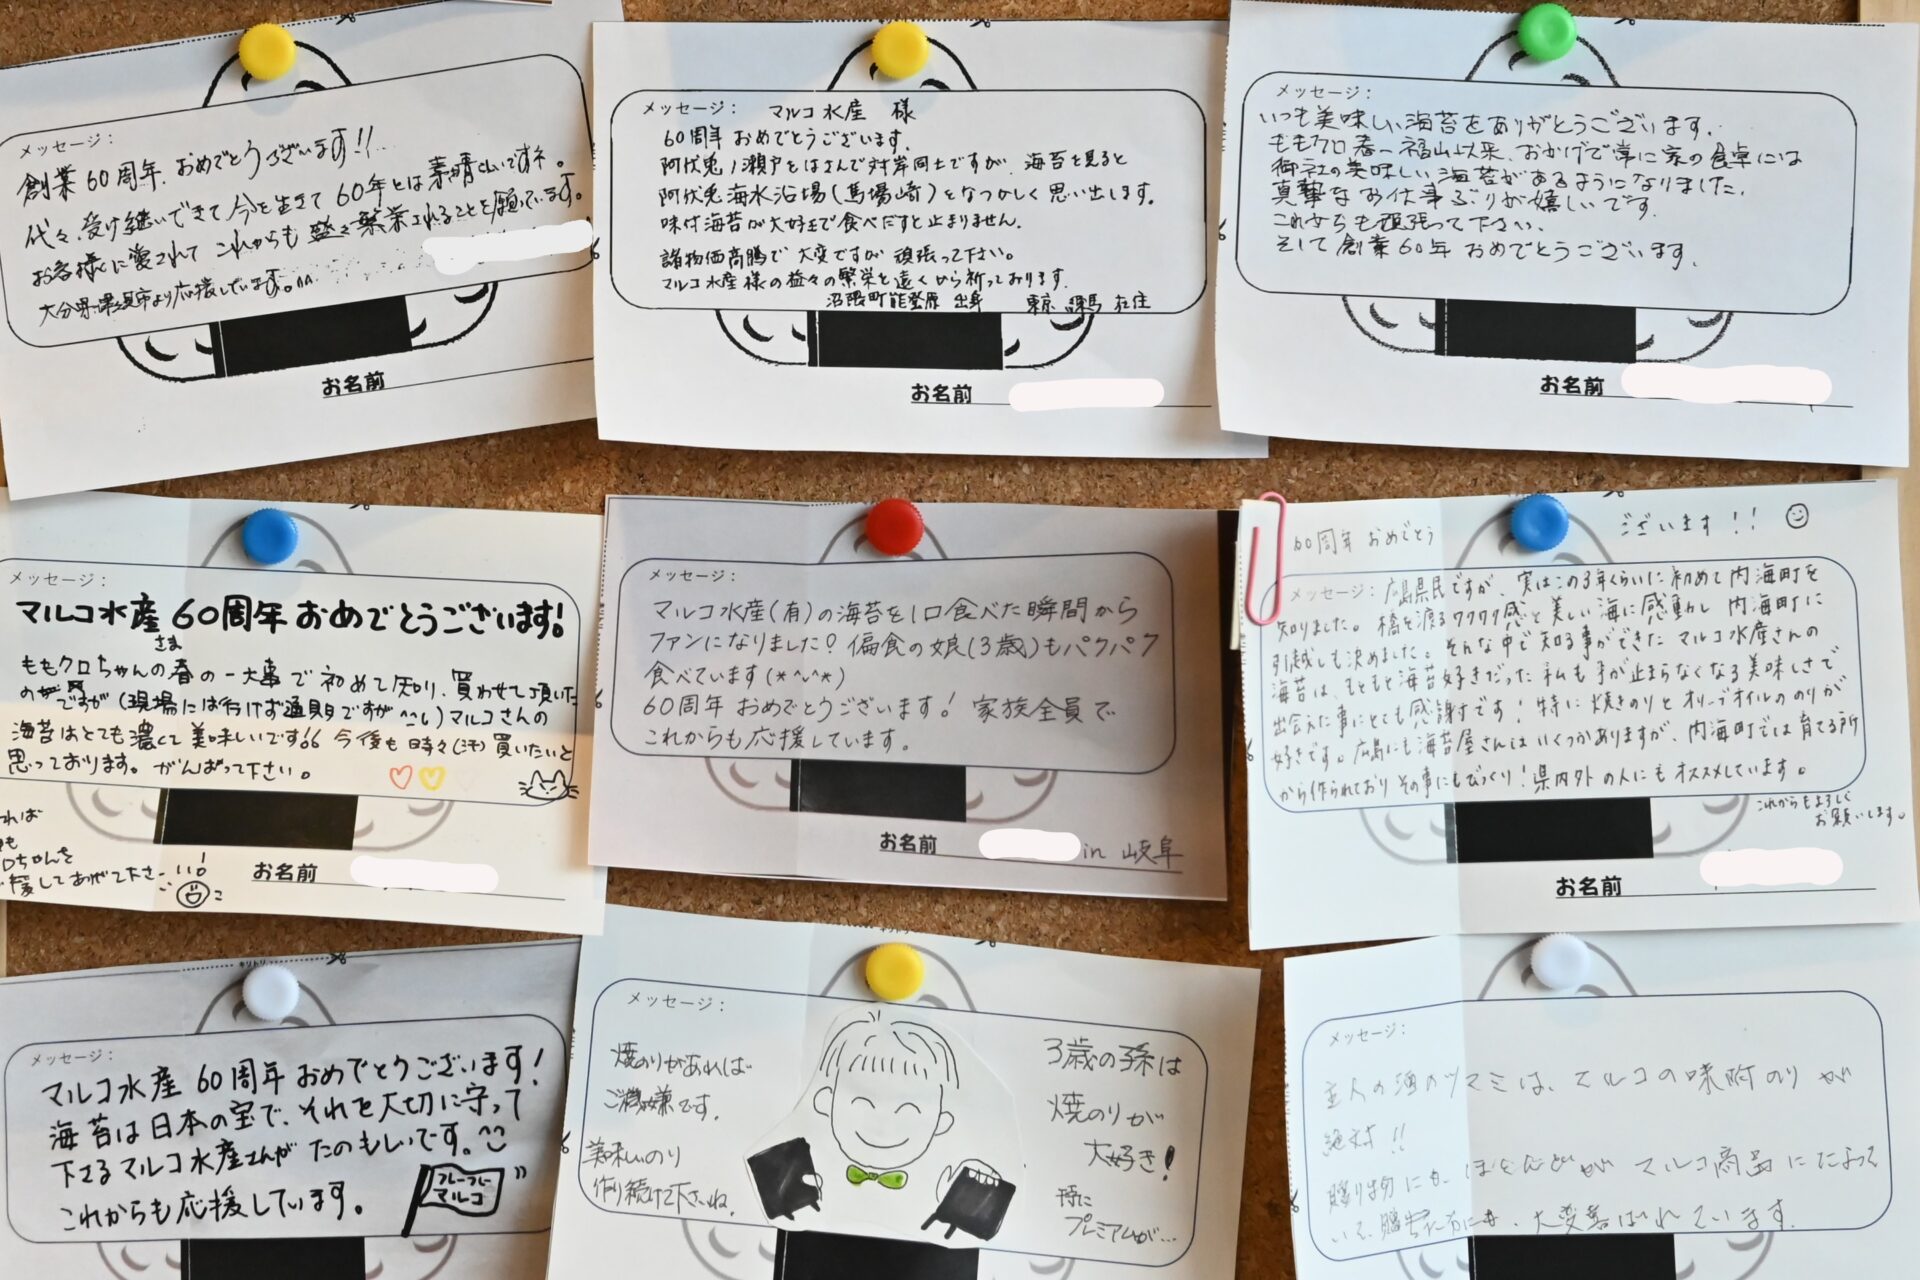 メッセージ：
創業60周年、おめでとうございます!!
代々、受け継いできて今を生きて60年とは素晴らしいですネ。
お客様に愛されて これからも 益々繁栄されることを願っています。
大分県 より応援しています。
お名前
メッセージ： マルコ水産 様
60周年 おめでとうございます。
阿伏兎ノ瀬戸をはさんで対岸同士ですが、海苔を見ると
阿伏兎海水浴場(馬場崎)をなつかしく思い出します。
味付海苔が大好きで食べだすと止まりません。
諸物価高騰で 大変ですが 頑張って下さい。
マルコ水産様の益々の繁栄を遠くから祈っております。
沼隈町能登原 出身 東京 練馬 在住
お名前
メッセージ：
いつも美味しい海苔をありがとうございます。
ももクロ春一福山以来、おかげで常に家の食卓には
御社の美味しい海苔があるようになりました。
真摯なお仕事ぶりが嬉しいです。
これからも頑張って下さい。
そして創業60年 おめでとうございます。
お名前
メッセージ：
マルコ水産さま 60周年 おめでとうございます!
ももクロちゃんの春の一大事で初めて知り、買わせて頂いた
のですが(現場には行けず通販ですが^^;)マルコさんの
海苔はとても濃くて美味しいです!! 今後も時々(汗)買いたいと
思っております。がんばって下さい。
れば
も
ロちゃんを
援してあげて下さーい!
お名前
メッセージ：
マルコ水産(有)の海苔を1口食べた瞬間から
ファンになりました? 偏食の娘(3歳)もパクパク
食べています(*^^*)
60周年 おめでとうございます! 家族全員で
これからも応援しています。
お名前 in 岐阜
60周年 おめでとう
ございます!!
メッセージ：広島県民ですが、実はこの3年くらいに初めて内海町を
知りました。橋を渡るワクワク感と美しい海に感動し 内海町に
引越しも決めました。そんな中で知る事ができた マルコ水産さんの
海苔は、もともと海苔好きだった私も手が止まらなくなる美味しさで
出会えた事にとても感謝です! 特に焼きのりとオリーブオイルののりが
好きです。広島にも海苔屋さんはいくつかありますが、内海町では育てる所
から作られており その事にもびっくり! 県内外の人にもオススメしています。
これからもよろしく
お願いします。
お名前
キリトリ
メッセージ：
マルコ水産 60周年おめでとうございます!
海苔は日本の宝で、それを大切に守って
下さるマルコ水産さんがたのもしいです。^^
これからも応援しています。
フレーフレー
マルコ
キリトリ
メッセージ：
焼のりがあれば
ご機嫌です。
美味しいのり
作り続けて下さいね。
3歳の孫は
焼のりが
大好き!
特に
プレミアムが…
メッセージ：
主人の酒のツマミは、マルコの味附のりが
絶対!!
贈り物にも、ほとんどがマルコ商品にたよって
いて、贈られた方にも、大変喜ばれています。